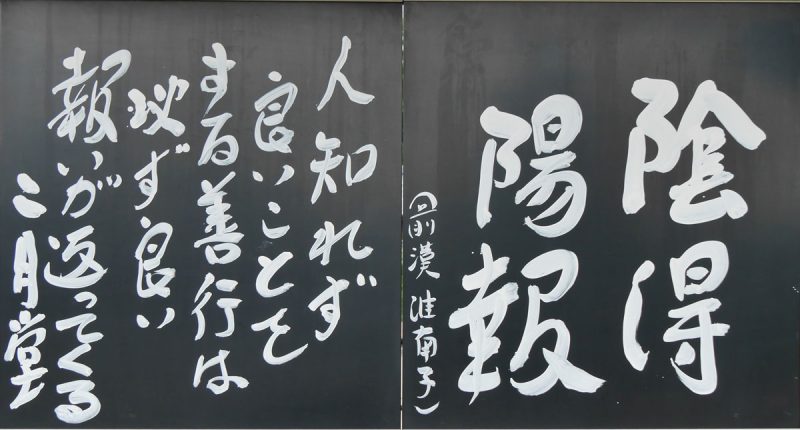 陰得
陽報
(前漢 淮南子)
人知れず
良いことを
する善行は
必ず良い
報いが返ってくる
二月堂